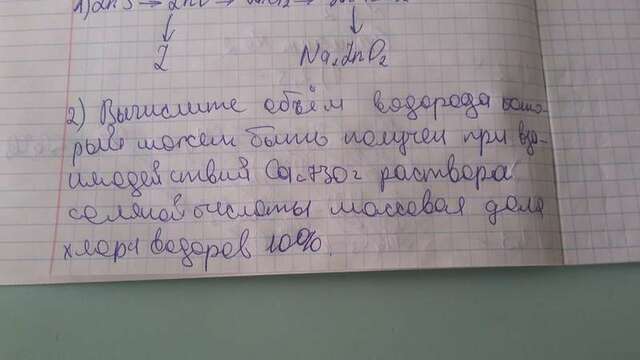 1) ZnS → ZnO →
↓ ↓
Z Na₂ZnO₂
2) Вычислите объём водорода кото-
рый может быть получен при вза-
имодействий Ca с 730 г раствора
соляной кислоты массовая доля
хлора водоров 10%.